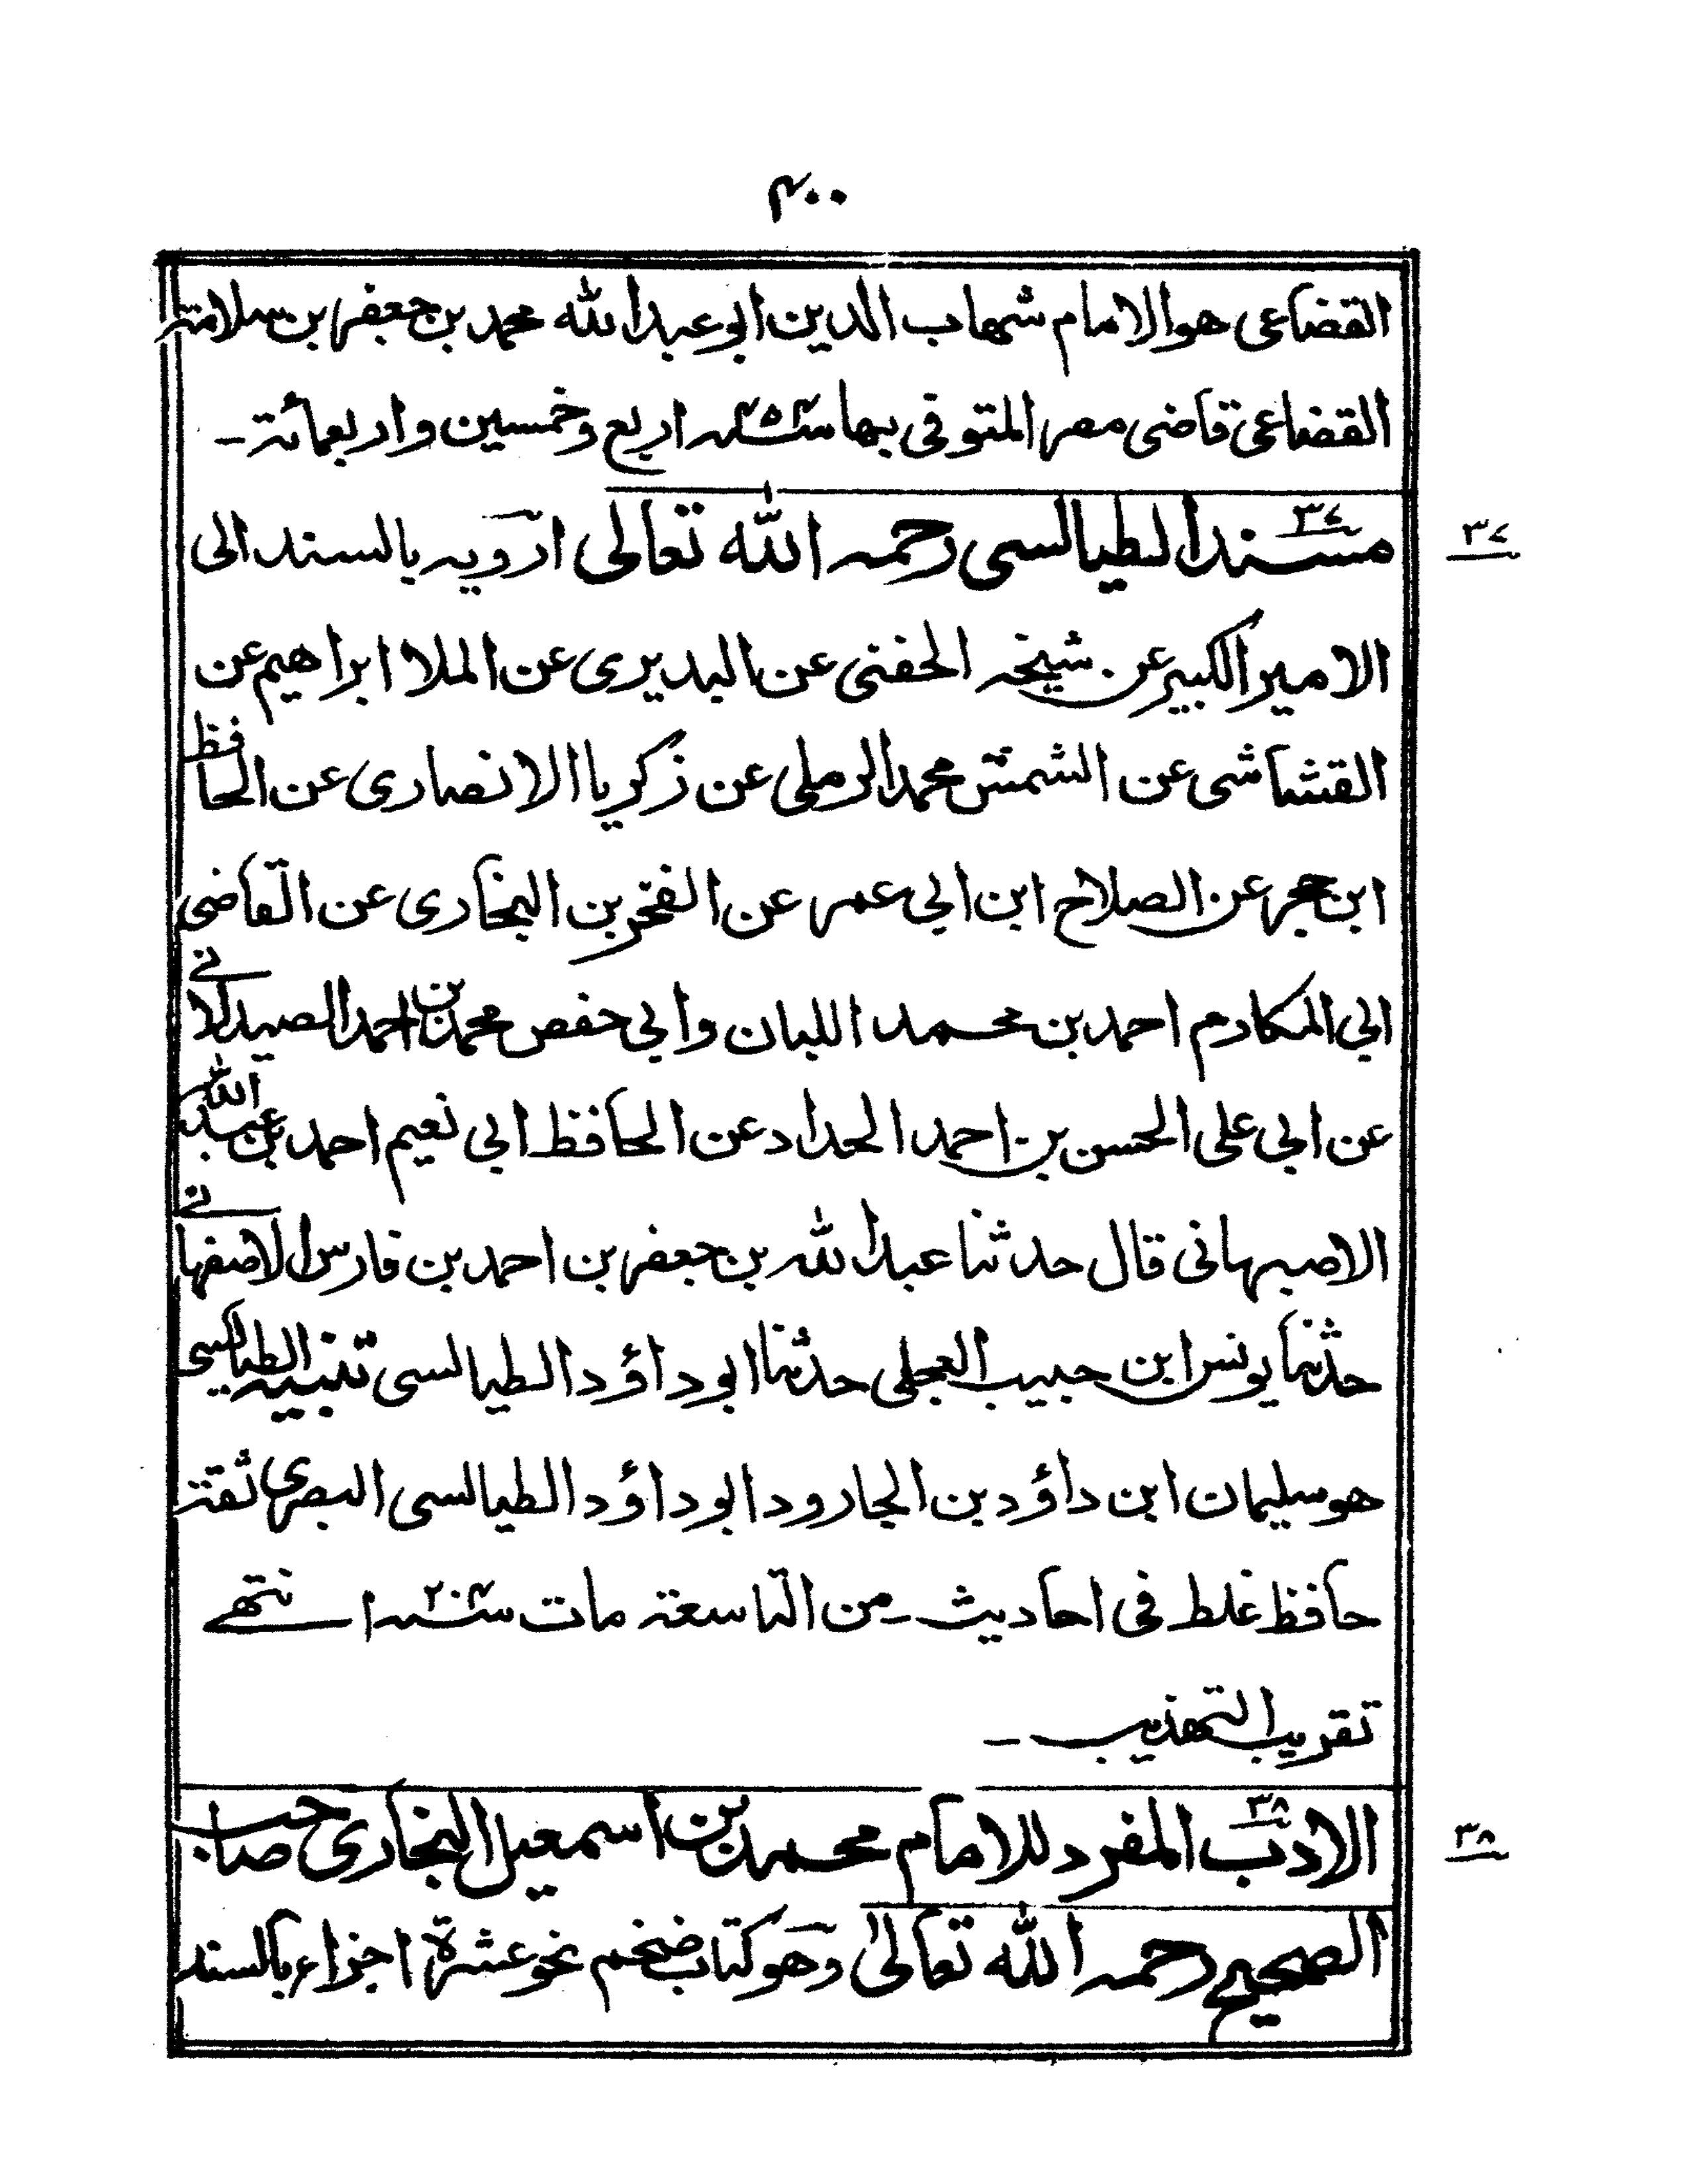 ۴۰۰
القضاعى هو الامام شهاب الدين ابو عبد الله محمد بن جعفر بن سلامة
القضاعى قاضى مصر المتوفى بها سنه ۴۵۴ اربع وخمسين واربعمائة ـ
۳۷ مسند الطيالسى رحمه الله تعالى ارويه بالسند الى
۳۷
الامير الكبير عن شيخه الحفنى عن البديرى عن الملا ابراهيم عن
القشاشى عن الشمس محمد الرملى عن زكريا الانصارى عن الحافظ
ابن حجر عن الصلاح ابن ابى عمر عن الفخر بن البخارى عن القاضى
ابى المكارم احمد بن محمد اللبان وابى حفص محمد بن احمد الصيدلانے
عن ابى على الحسن بن احمد الحداد عن الحافظ ابى نعيم احمد بن عبد الله
الاصبهانى قال حدثنا عبد الله بن جعفر بن احمد بن فارس الاصفهانے
حدثنا يونس ابن حبيب العجلى حدثنا ابو داؤد الطيالسى تنبيه الطيالسى
هو سليمان ابن داؤد بن الجارود ابو داؤد الطيالسى البصرى ثقة
حافظ غلط فى احاديث ـ من التاسعة مات سنه ۲۰۴ انتهے
تقريب التهذيب ـ
۳۸ الادب المفرد للامام محمد بن اسمعيل البخارى صاحب
۳۸
الصحيح رحمه الله تعالىٰ وهو كتاب ضخم نحو عشرة اجزاء بالسند